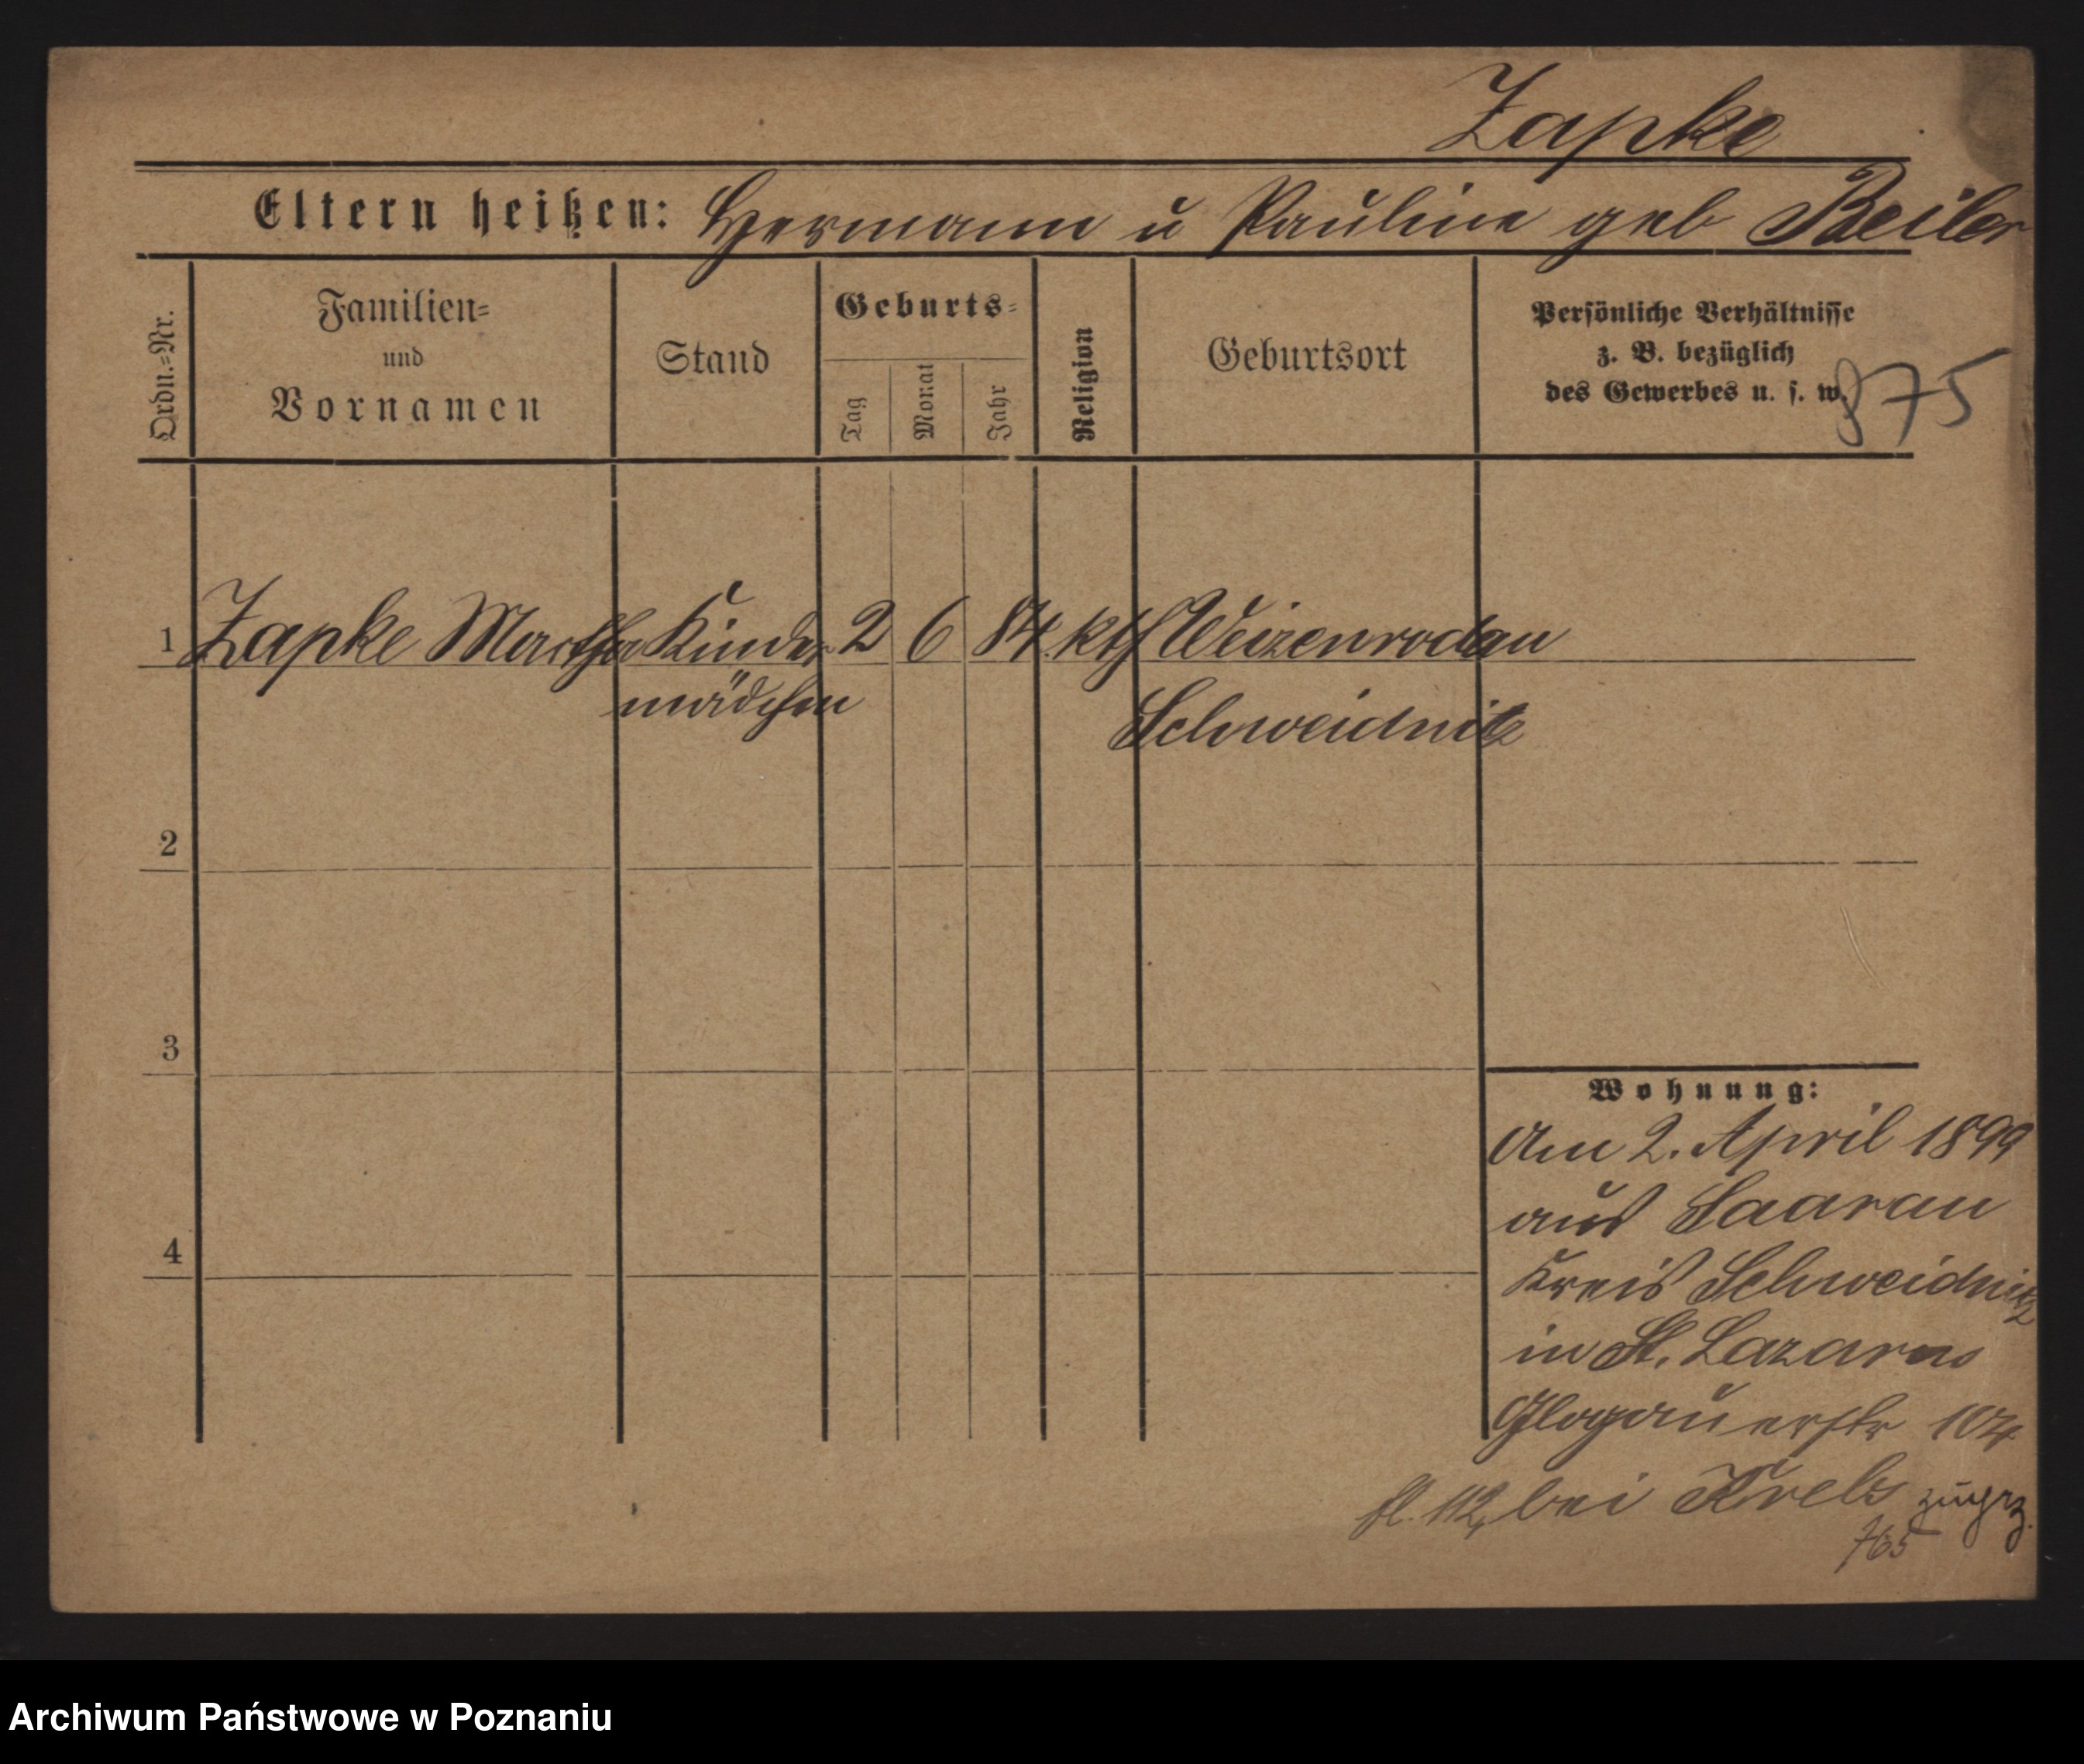 Zapke
Eltern heißen: Hermann u Pauline geb Beiler
Ordn.=Nr.
Familien=
und
Vornamen
Stand
Geburts=
Tag
Monat
Jahr
Religion
Geburtsort
Persönliche Verhältnisse
z. B. bezüglich
des Gewerbes u. s. w.
875
1 Zapke Martha Kinder 2 6 84 kth Weizenrodau
mädchen Schweidnitz
2
3
Wohnung:
Am 2. April 1899
aus Saarau
4
Kreis Schweidnitz
in St. Lazarus
Glogauerstr 104
bei Krebs zugez.
765
Archiwum Państwowe w Poznaniu